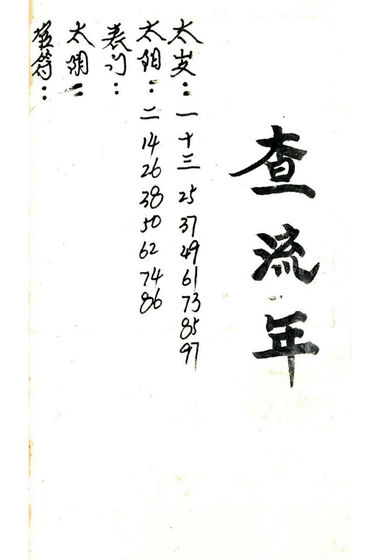 查流年
太岁：一 十三 25 37 49 61 73 85 97
太阳：二 14 26 38 50 62 74 86
丧门：
太阴：
官符：